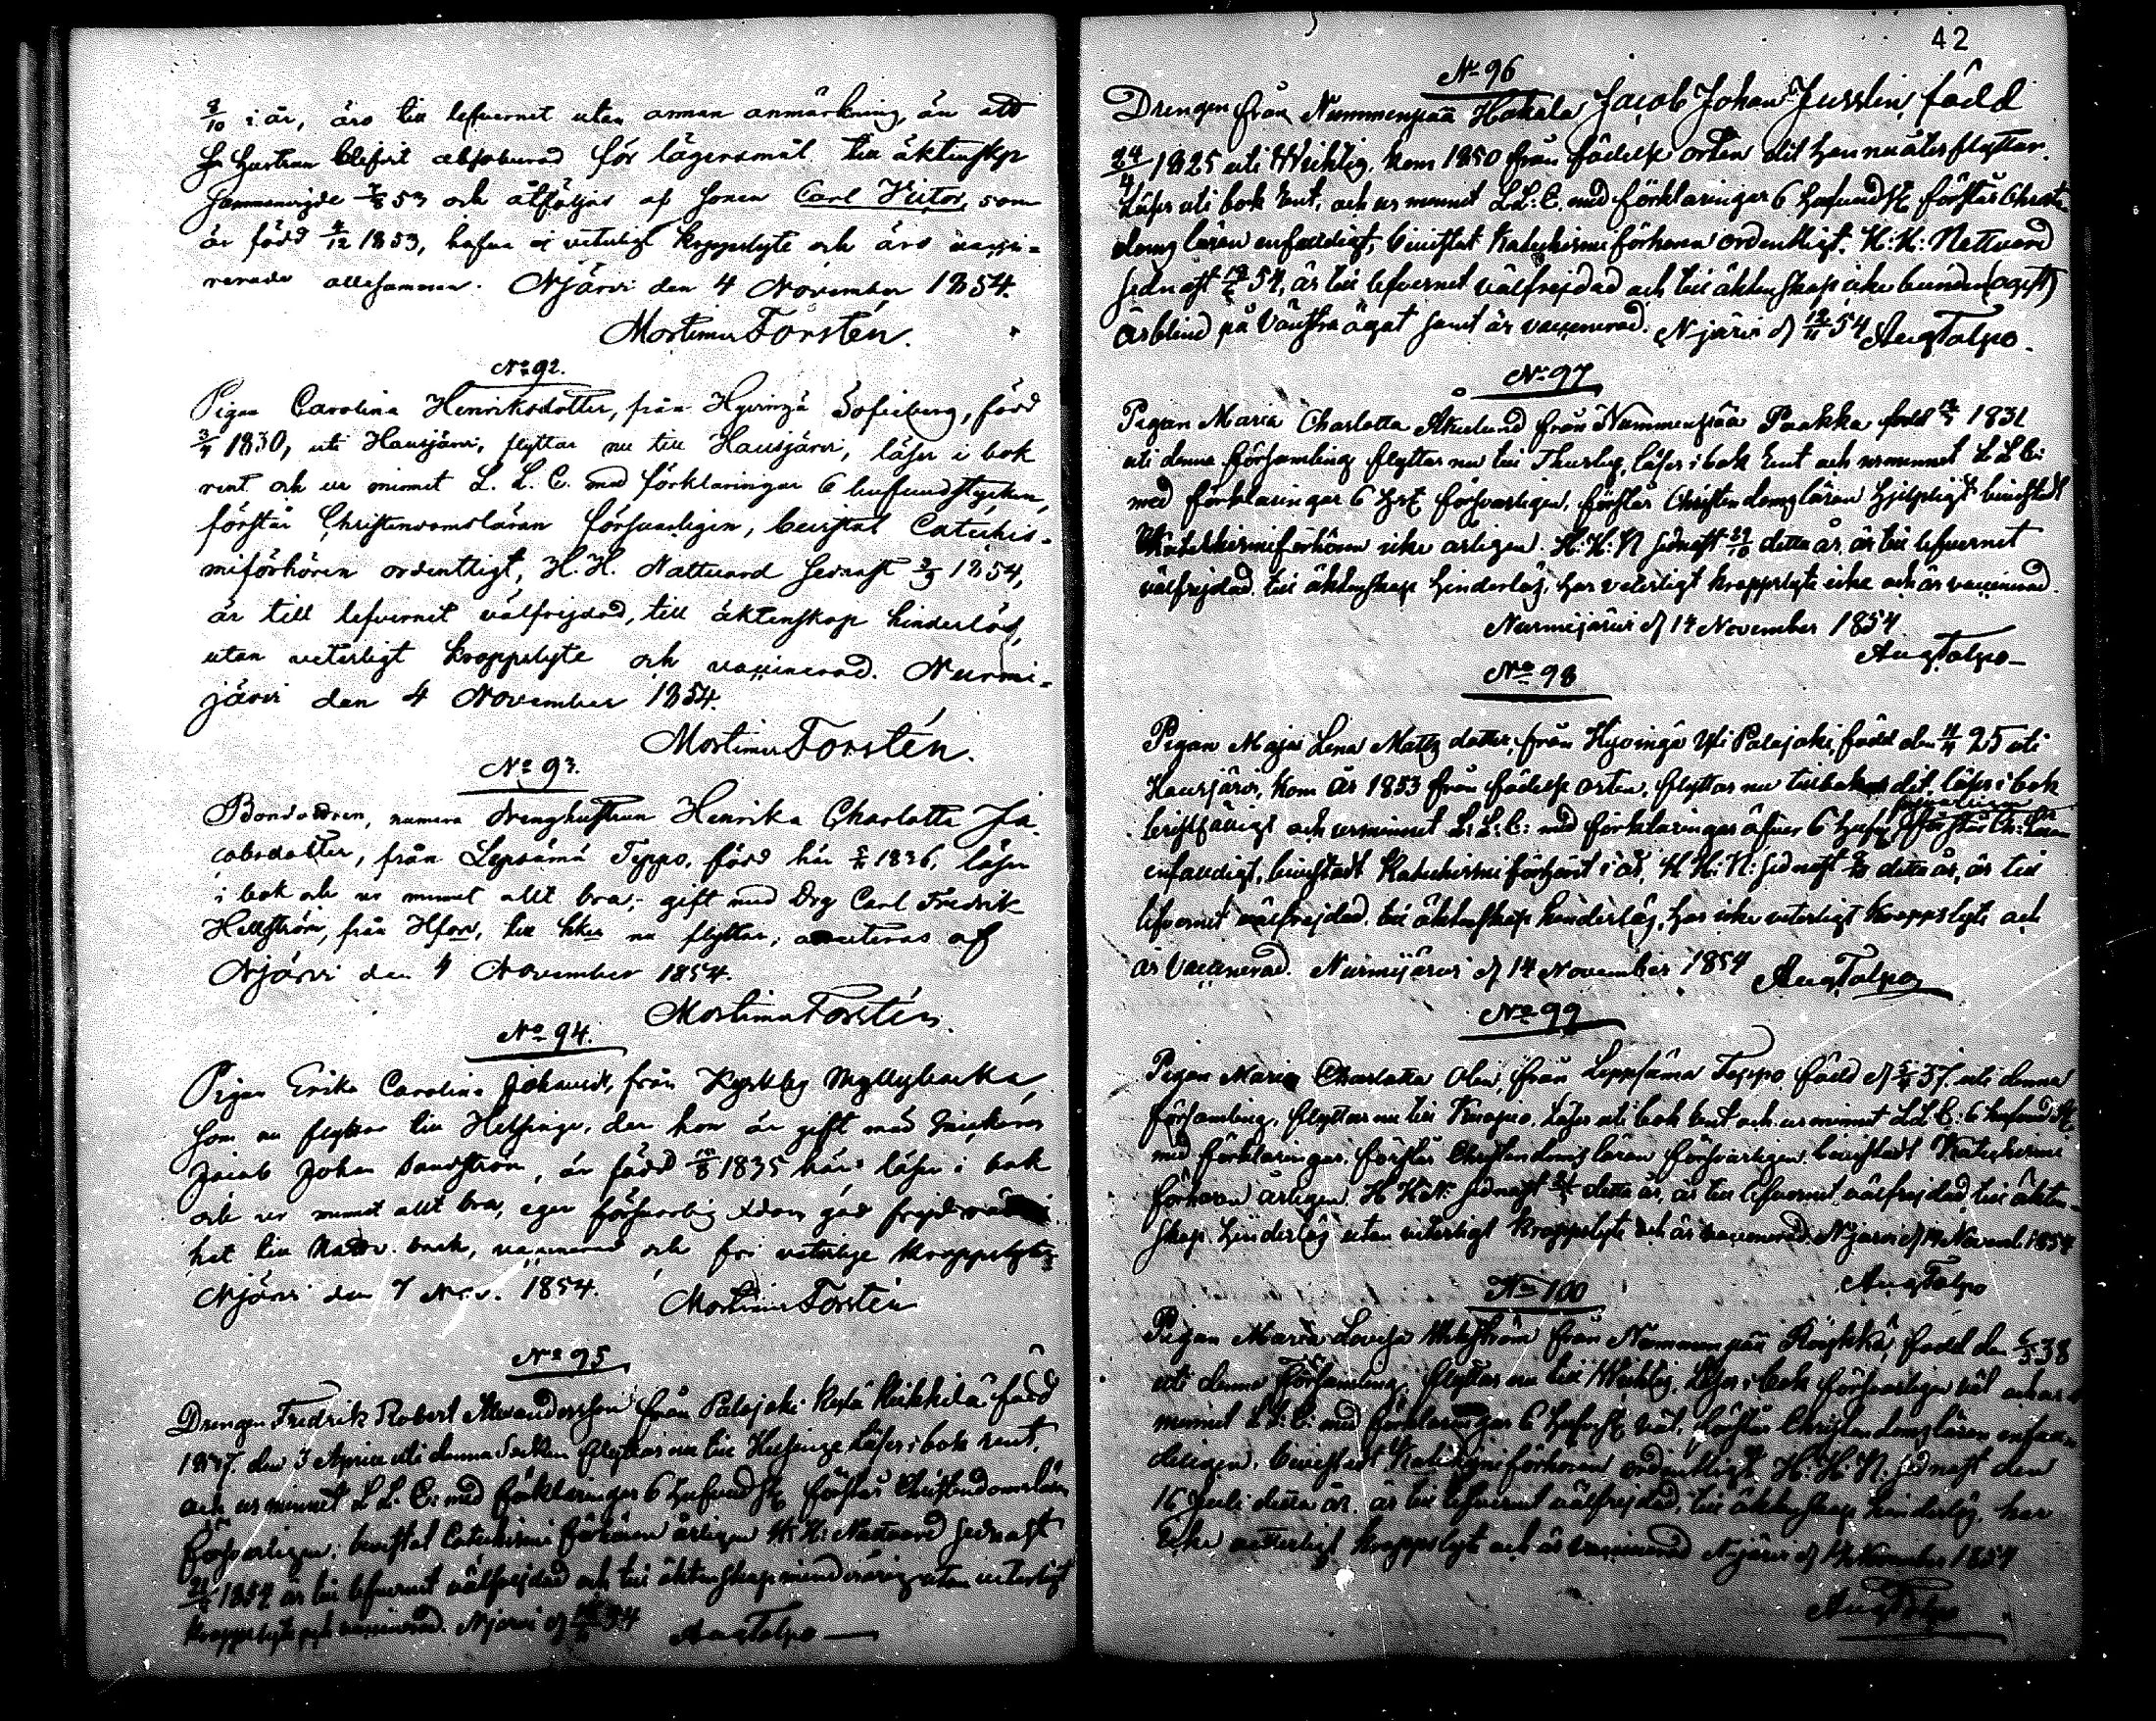 8/10 i år, äro till lefvernet utan annan anmärkning, än att
hustrun blifvit absolverad för lägersmål. till äktenskap
sammanvigde 7/8 53 och åtföljas af sonen Carl Victor, som
är född 2/12 1853, hafva ej veterligt kroppslyte och äro vacci-
nerade allesamman. NJärvi den 4 November 1854.
Mortimer Forstén.
No 92.
Pigan Carolina Henriksdotter, från Hyvinge Sofieberg, född
3/4 1830, uti Hausjärvi, flyttar nu till Hausjärvi, läser i bok
rent och ur minnet L. L. C. med förklaringar 6 hufvudstycken,
förstår Christendomsläran försvarligen, bevistat Catechis-
miförhören ordentligt, H. H. Nattvard sednast 2/9 1854,
är till lefvernet välfrejdad, till äktenskap hinderlös,
utan veterligt kroppslyte och vaccinerad. Nurmi-
järvi den 4 November 1854.
Mortimer Forstén.
No 93.
Bondedottren, numera Drenghustrun Henrika Charlotta Ja-
cobsdotter, från Lepsämä Teppo, född här 1836, läser
i bok och ur minnet allt bra, gift med Drg Carl Fredrik
Hellström, från Hfors, till hken nu flyttar; attesteras af
NJärvi den 4 November 1854.
Mortimer Forstén.
No 94.
Pigan Erika Carolina Johansdr, från Kyrkby Myllybacka,
som nu flyttar till Helsinge, der hon är gift med
Jacob Johan Sandström, är född 10/8 1835 här, läser i bok
och ur minnet allt bra, eger försvarlig Xdom, god frejd
het till Nattv. bruk, vaccinerad och fri veterlige kroppslyte
NJärvi den 7 Nov. 1854. Mortimer Forstén
No 95
Drengen Fredrik Robert Alexandersson från Palojoki Keskä Heikkilä född
1837. den 3 April uti denna Socken flyttar nu till Helsinge Läser i bok rent,
och ur minnet L L: C: med förklaringar 6 hufvudst, förstår Christendomsläran
försvarligen, bevistat Catechismi förhören årligen H: H: Nattvard sednast
1854 är till lefvernet välfrejdad och till äktenskap minderårig utan veterligt
kroppslyte och vaccinerad. NJärvi d 54 Aug Talpo
42
No 96
Drengen från Nummenpää Hakala Jacob Johan Jusslin, född
24/4 1825 uti Wichtis, kom 1850 från födelse orten dit han nu återflyttar.
Läser uti bok rent, och ur minnet LL: C. med förklaringar 6 hufvudst, förstår Christen-
doms läran enfaldigt, bevistat Katechismi förhören ordentligt. H: H: Nattvard
sednast 54, är till lefvernet välfrejdad och till äktenskap icke bunden (ogift)
är blind på vänstra ögat samt är vaccinerad. NJärvi d 12/11 54 Aug Talpo
No 97
Pigan Maria Charlotta Åkerlund från Nummenpää Paakka född 1831
uti denna församling flyttar nu till Thusby, läser i bok rent och ur minnet L L C:
med förklaringar 6 hfst försvarligen, förstår Christendomsläran hjelpligt bevistadt
Katechismiförhören icke årligen. H: H: N sednast 29/10 detta år, är till lefvernet
välfrejdad, till äktenskap hinderlös, har veterligt kroppslyte icke och är vaccinerad.
Nurmijärvi d 14 November 1854
Aug Talpo
No 98
Pigan Maja Lena Matts dotter, från Hyvinge Yli Palojoki, född den 25 uti
Hausjärvi, kom år 1853 från födelse orten, flyttar nu tillbaka dit, läser i bok
och ur minnet L: L: C: med förklaringar öfver 6 hufst förstår Ch: Läran
enfaldigt, bevistadt Katechismi förhöret i år, H H: N: sednast detta år, är till
lefvernet välfrejdad, till äktenskap hinderlös, har icke veterligt kroppslyte och
är vaccinerad. Nurmijärvi d 14 November 1854 Aug Talpo
No 99
Pigan Maria Charlotta Olin, från Leppsämä Teppo född d 37, uti denna
församling, flyttar nu till Kuopio. Läser uti bok rent och ur minnet L L C: 6 hufvudst
med förklaringar. förstår Christendoms läran försvarligen, bevistadt Katechismi
förhören årligen. H H N. sednast detta år, är till lefvernet välfrejdad, till äkten-
skap hinderlös utan veterligt kroppslyte och är vaccinerad NJärvi d 14 Novemb 1854
Aug Talpo
No 100
Pigan Maria Lovisa från Nummenpää född den 38
uti denna församling, flyttar nu till Wichtis. Läser i bok försvarligen väl och ur
minnet L L: C: med förklaringar 6 hufst väl, förstår Christendomsläran enfal-
deligen, bevistadt Katechismi förhören ordentligt H: H: N. sednast den
16 Juli detta år. är till lefvernet välfrejdad, till äktenskap hinderlös, har
icke veterligt kroppslyte och är vaccinerad NJärvi d 14 November 1854
Aug Talpo